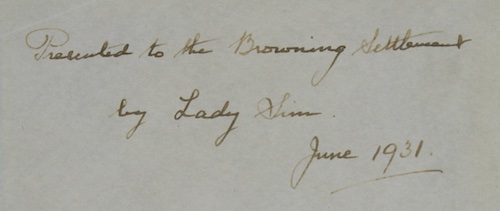 Presented to the Browning Settlement
by Lady Sim.
June 1931.